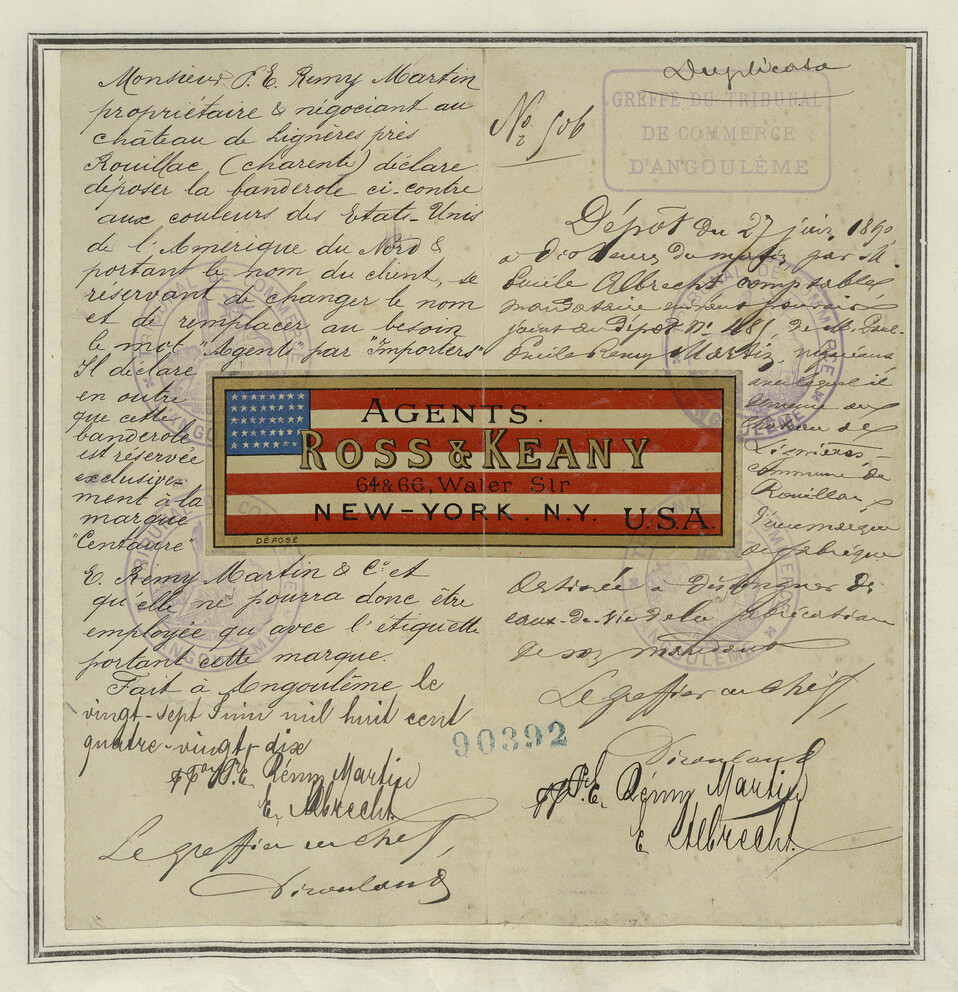 Monsieur P. E. Remy Martin
propriétaire & négociant au
château de Lignères près
Rouillac (charente) déclare
déposer la banderole ci-contre
aux couleurs des Etats-Unis
de l'Amérique du Nord &
portant le nom du client, se
réservant de changer le nom
et de remplacer au besoin
le mot "Agents" par "Importers"
Il déclare
en outre
que cette
banderole
est réservée
exclusive-
ment à la
marque
"Centaure"
E. Rémy Martin & Cº et
qu'elle ne pourra donc être
employée qu'avec l'étiquette
portant cette marque.
Fait à Angoulême le
vingt-sept Juin mil huit cent
quatre-vingt-dix
P.E. Rémy Martin
E. Albrecht
Le greffier en chef,
AGENTS:
ROSS & KEANY
64 & 66, Water Str
NEW-YORK. N.Y. U.S.A.
DÉPOSÉ
Duplicata
GREFFE DU TRIBUNAL
DE COMMERCE
D'ANGOULÊME
No 506
Dépôt du 27 juin 1890
à dix heures du matin par M.
Emile Albrecht comptable
mandataire
joint au dépôt Nº 481, de M. Paul-
Emile Remy Martin, négociant
avec lequel il
demeure au
château de
Lignères
commune de
Rouillac
d'une marque
de fabrique
destinée à désigner des
eaux-de-vie de la fabrication
de son mandant
Le greffier en chef,
P.E. Rémy Martin
E. Albrecht
90392
TRIBUNAL DE COMMERCE
D'ANGOULÊME
TRIBUNAL DE COMMERCE
D'ANGOULÊME
TRIBUNAL DE COMMERCE
D'ANGOULÊME
TRIBUNAL DE COMMERCE
D'ANGOULÊME